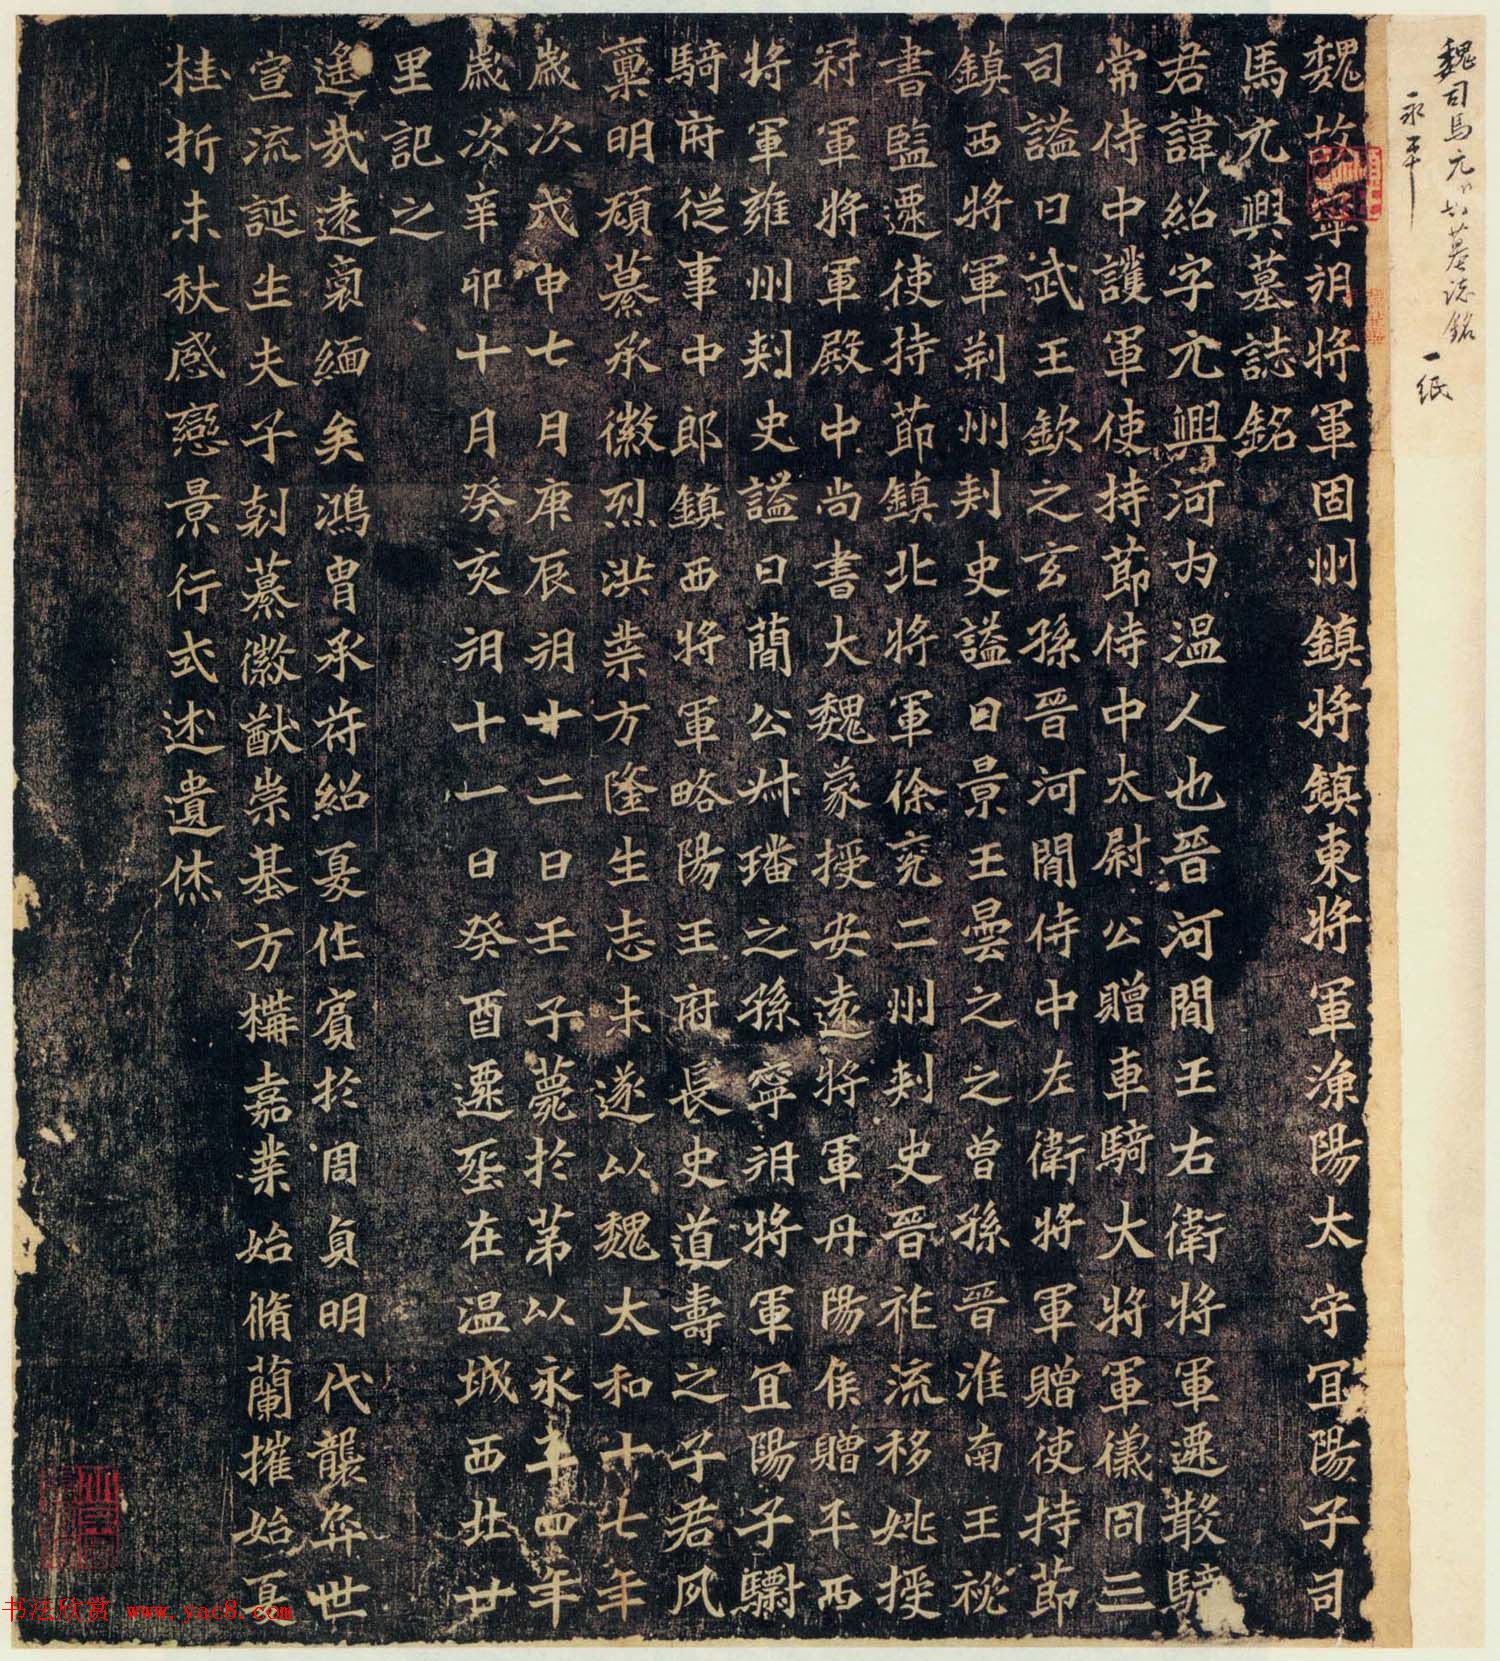 魏司馬元興墓誌銘 一紙
永平
魏故寧朔將軍固州鎮將鎮東將軍漁陽太守宜陽子司
馬元興墓誌銘
君諱紹字元興河内温人也晉河間王右衛將軍遷散騎
常侍中護軍使持節侍中太尉公贈車騎大將軍儀同三
司謚曰武王欽之玄孫晉河間侍中左衛將軍贈使持節
鎮西將軍荊州刾史謚曰景王曇之之曾孫晉淮南王秘
書監遷使持節鎮北將軍徐兖二州刾史晉祚流移姚授
冠軍將軍殿中尚書大魏蒙授安遠將軍丹陽侯贈平西
將軍雍州刾史謚曰蕳公叔璠之孫寧朔將軍宜陽子驃
騎府從事中郎鎮西將軍略陽王府長史道壽之子君夙
稟明頑纂承徽烈洪業方隆生志未遂以魏大和十七年
歲次戊申七月庚辰朔廿二日壬子薨於苐以永平四年
歲次辛卯十月癸亥朔十一日癸酉遷塟在温城西北廿
里記之
遙哉遠裔緬矣鴻胄承符紹夏作賓於周貞明代襲弈世
宣流誕生夫子剋纂徽猷崇基方構嘉業始脩蘭摧始夏
桂折未秋感戀景行式述遺烋
书法欣赏 www.yac8.com